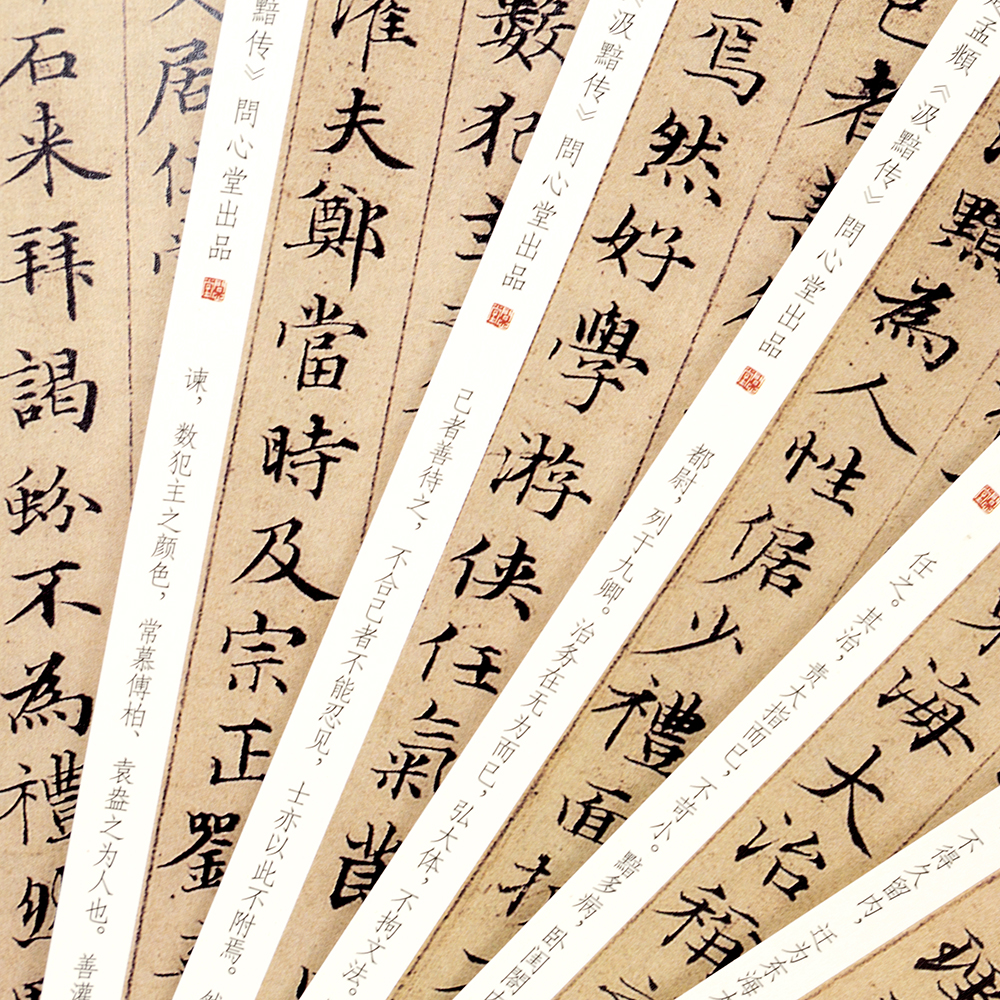 石来拜謁蚡不為禮
居位
黯传》 問心堂出品
谏，数犯主之颜色，常慕傅柏、袁盎之为人也。善灌
淮夫鄭當時及宗正劉
數犯主
《汲黯传》 問心堂出品
己者善待之，不合己者不能忍见，士亦以此不附焉。
焉然好學游俠任氣
者善
孟頫《汲黯传》 問心堂出品
都尉，列于九卿。治务在无为而已，弘大体，不拘文法。
為人性倨少禮面折
任之。其治，责大指而已，不苛小。黯多病，卧闺閤内
海大治稱
不得久留内，
迁为东海